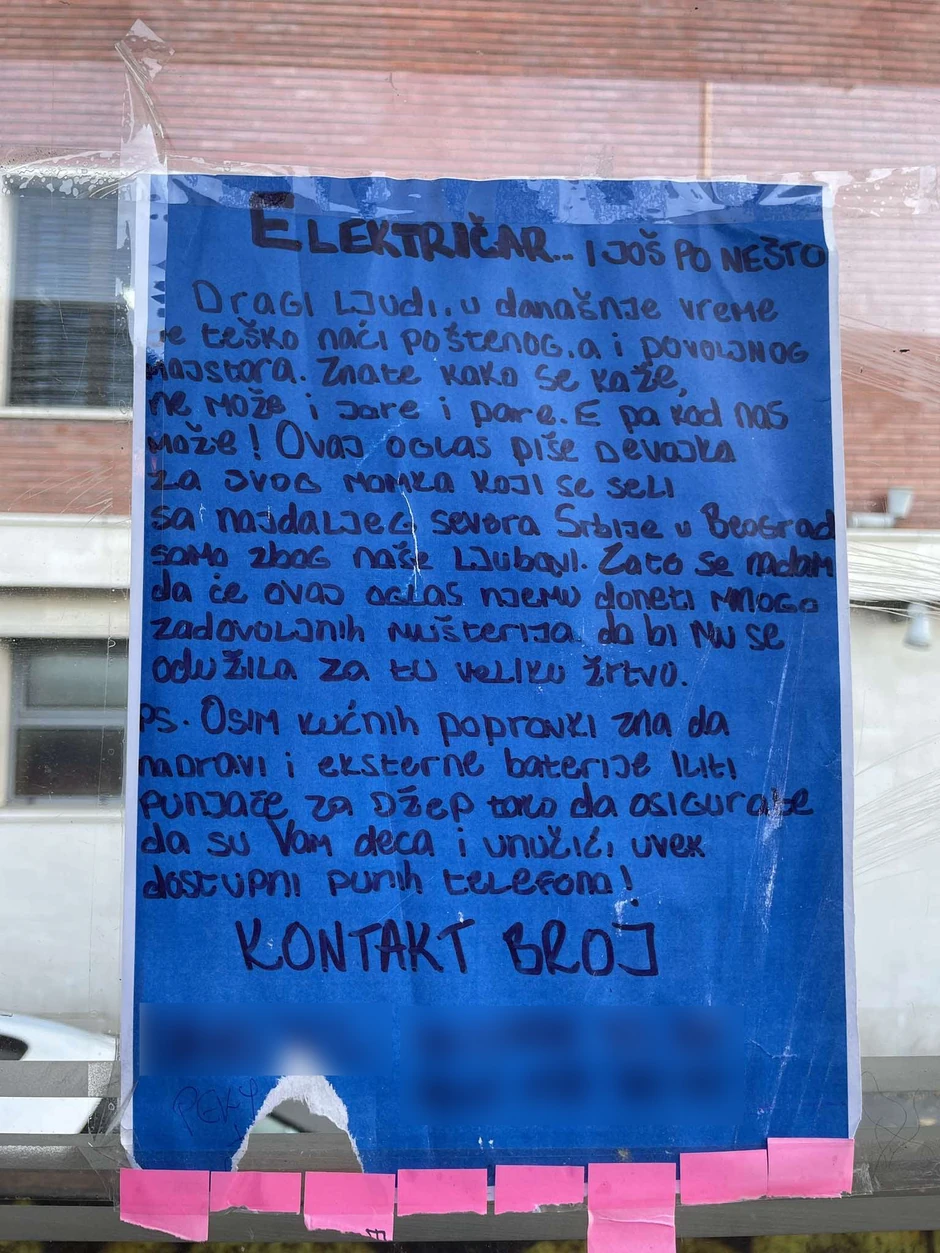 ELEKTRIČAR... I JOŠ PO NEŠTO
Dragi ljudi, u današnje vreme
je teško naći poštenog, a i povoljnog
majstora. Znate kako se kaže,
ne može i jare i pare. E pa kod nas
može! Ovaj oglas piše devojka
za svog momka koji se seli
sa najdaljeg severa Srbije u Beograd
samo zbog naše ljubavi. Zato se nadam
da će ovaj oglas njemu doneti mnogo
zadovoljnih mušterija da bi mu se
odužila za tu veliku žrtvu.
PS. Osim kućnih popravki zna da
napravi i eksterne baterije iliti
punjače za džep tako da osigurate
da su Vam deca i unučići uvek
dostupni punih telefona!
KONTAKT BROJ
PEKY